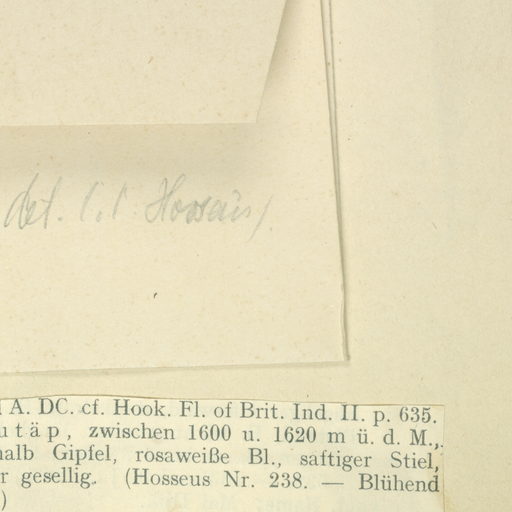 det. C. C. Hosseus
A. DC. cf. Hook. Fl. of Brit. Ind. II. p. 635.
utäp, zwischen 1600 u. 1620 m ü. d. M.,
halb Gipfel, rosaweiße Bl., saftiger Stiel,
r gesellig. (Hosseus Nr. 238. — Blühend
)